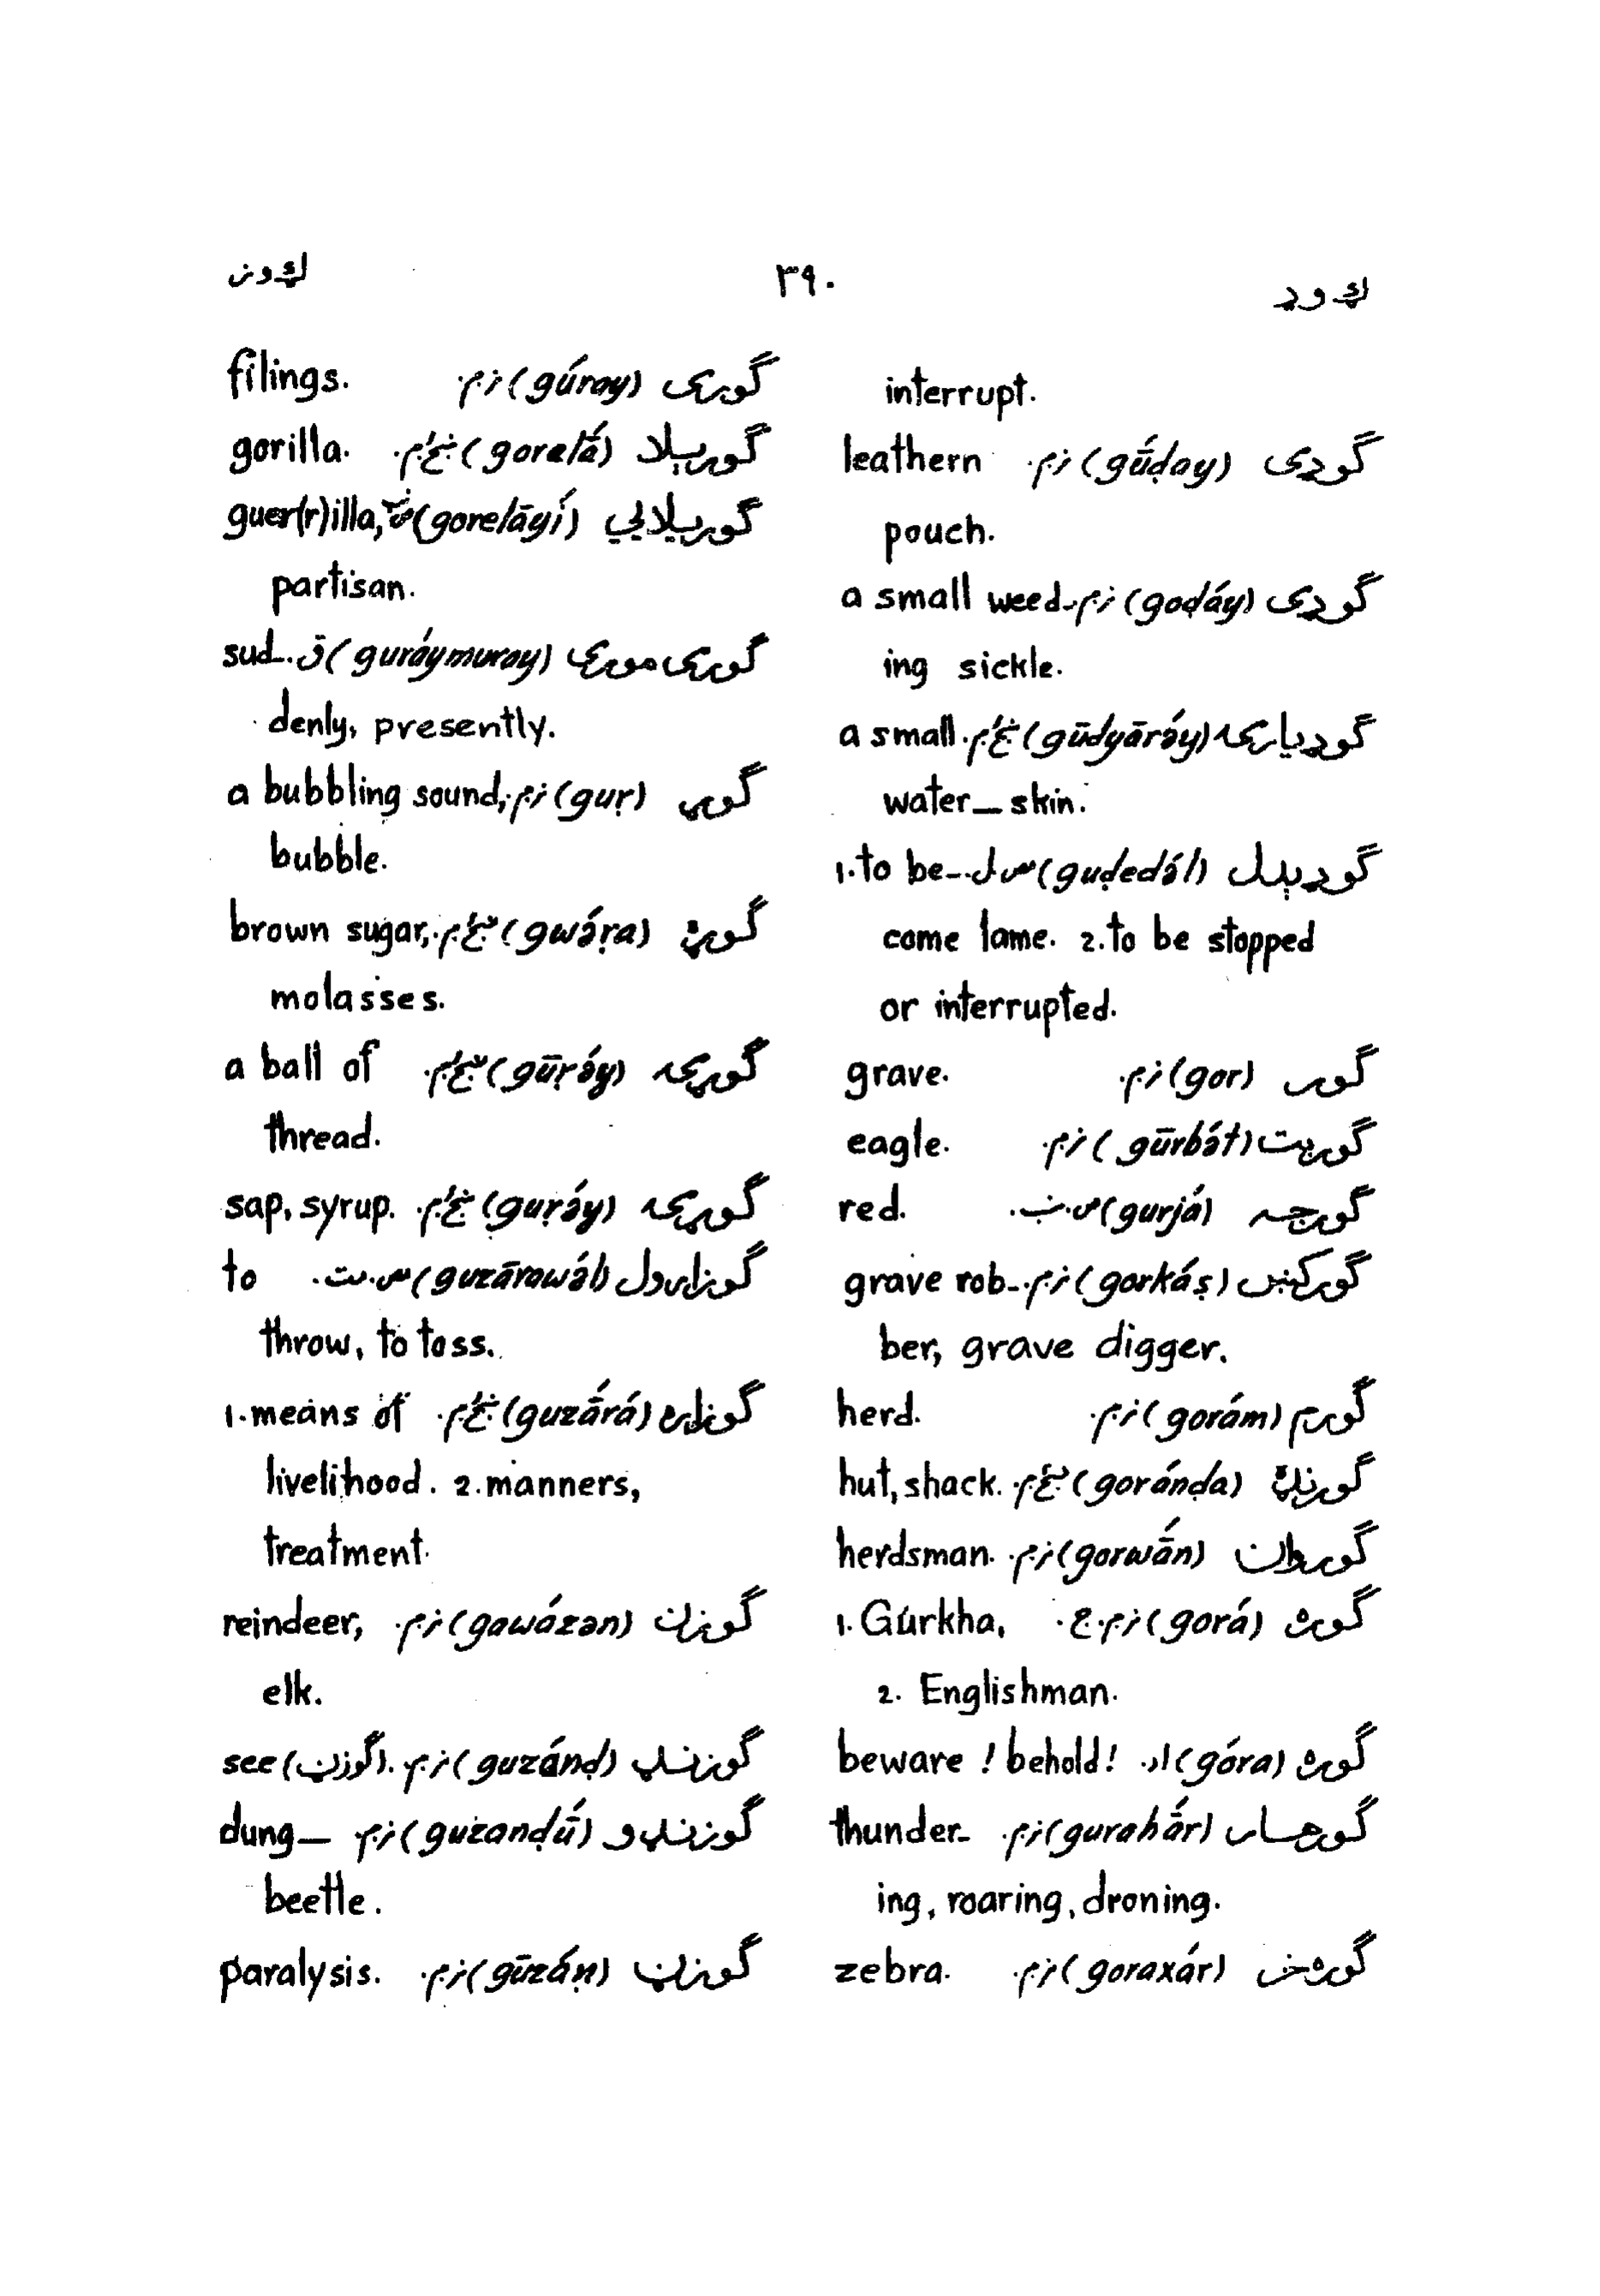 گ و ډ ٣٩٠ گ و ز
interrupt.
گوډی (gū́ḍay) نر.م. leathern
pouch.
گوډی (goḍáy) نر.م. a small weed-
ing sickle.
گوډیارۍ (gūdyārə́y) ښځ.م. a small
water-skin.
گوډېدل (guḍedə́l) مص ل. 1. to be-
come lame. 2. to be stopped
or interrupted.
گور (gor) نر.م. grave.
گوربت (gūrbát) نر.م. eagle.
گورجه (gurjá) red.
گورکښ (gorkáṣ) نر.م. grave rob-
ber, grave digger.
گورم (gorám) نر.م. herd.
گورنډه (goránḍa) ښځ.م. hut, shack.
گوروان (gorwā́n) نر.م. herdsman.
گوره (gorá) نر.م.ج. 1. Gurkha,
2. Englishman.
گوره (góra) اد. beware ! behold !
گورهار (gurahā́r) نر.م. thunder-
ing, roaring, droning.
گوره‌خر (goraxár) نر.م. zebra.
گوری (gúray) نر.م. filings.
گوریلا (gorelā́) ښځ.م. gorilla.
گوریلایي (gorelāyí) ص. guer(r)illa,
partisan.
گوری موری (guráymuray) ق. sud-
denly, presently.
گوړ (guṛ) نر.م. a bubbling sound,
bubble.
گوړه (gwə́ṛa) ښځ.م. brown sugar,
molasses.
گوړۍ (gūṛə́y) ښځ.م. a ball of
thread.
گوړۍ (guṛə́y) ښځ.م. sap, syrup.
گوزارول (guzārawə́l) مص.مت. to
throw, to toss.
گوزاره (guzā́rá) ښځ.م. 1. means of
livelihood. 2. manners,
treatment.
گوزن (gawázən) نر.م. reindeer,
elk.
گوزنډ (guzánḍ) نر.م. see (گوزڼ).
گوزنډو (guzanḍū́) نر.م. dung-
beetle.
گوزڼ (gūzáṇ) نر.م. paralysis.